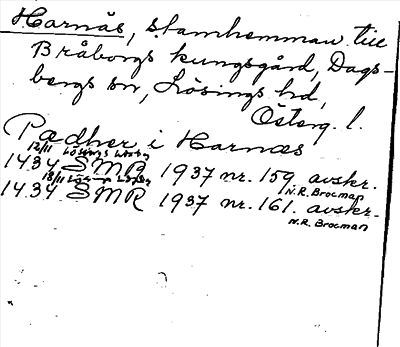 Harnäs, stamhemman till
Bråborgs kungsgård, Dags-
bergs sn, Lösings hd,
Österg. l.
Pædher i Harnæs
12/11 Lösings
1434 SMR 1937 nr. 159 avskr.
N.R. Brocman
18/11
1434 SMR 1937 nr. 161. avskr.
N.R. Brocman